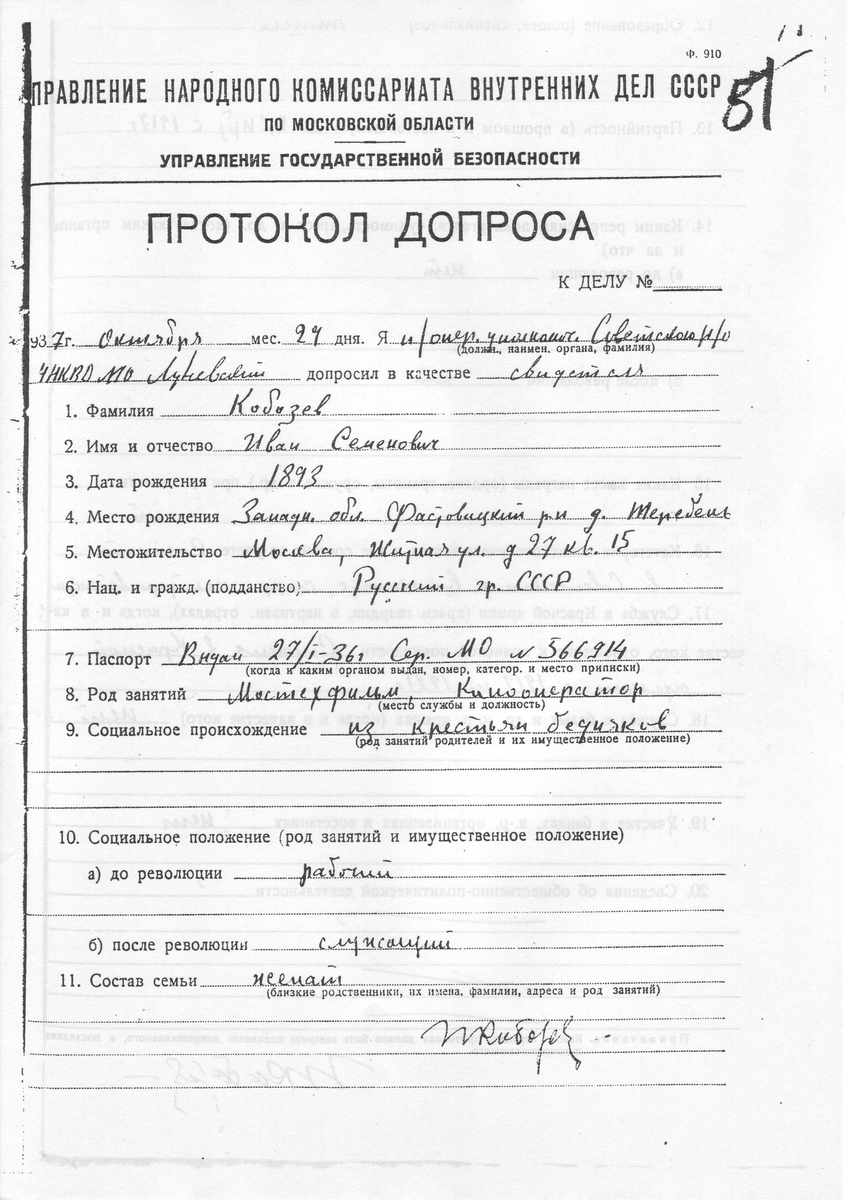 Ф. 910
51
ПРАВЛЕНИЕ НАРОДНОГО КОМИССАРИАТА ВНУТРЕННИХ ДЕЛ СССР
ПО МОСКОВСКОЙ ОБЛАСТИ
УПРАВЛЕНИЕ ГОСУДАРСТВЕННОЙ БЕЗОПАСНОСТИ
ПРОТОКОЛ ДОПРОСА
К ДЕЛУ №
937 г. октября мес. 29 дня. Я и/опер. уполномоч. Советского р/о
(должн., наимен. органа, фамилия)
УНКВД МО допросил в качестве свидетеля
1. Фамилия Кобозев
2. Имя и отчество Иван Семенович
3. Дата рождения 1893
4. Место рождения Западн. обл. р-н д. Теребень
5. Местожительство Москва, Житная ул. д 27 кв. 15
6. Нац. и гражд. (подданство) Русский гр. СССР
7. Паспорт Выдан 27/I-36г Сер. МО № 566914
(когда и каким органом выдан, номер, категор. и место приписки)
8. Род занятий Мостехфильм, Кинооператор
(место службы и должность)
9. Социальное происхождение из крестьян бедняков
(род занятий родителей и их имущественное положение)
10. Социальное положение (род занятий и имущественное положение)
а) до революции рабочий
б) после революции служащий
11. Состав семьи женат
(близкие родственники, их имена, фамилии, адреса и род занятий)